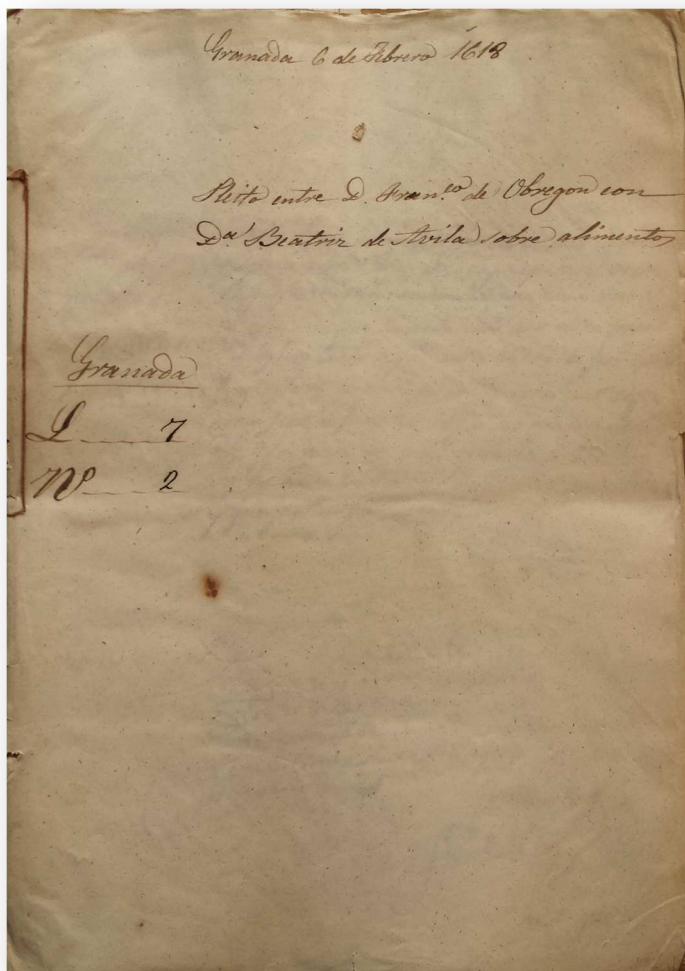 Granada 6 de Febrero 1618
Pleito entre D. Fran.co de Obregon con
Da. Beatriz de Avila sobre alimentos
Granada
L 7
No 2